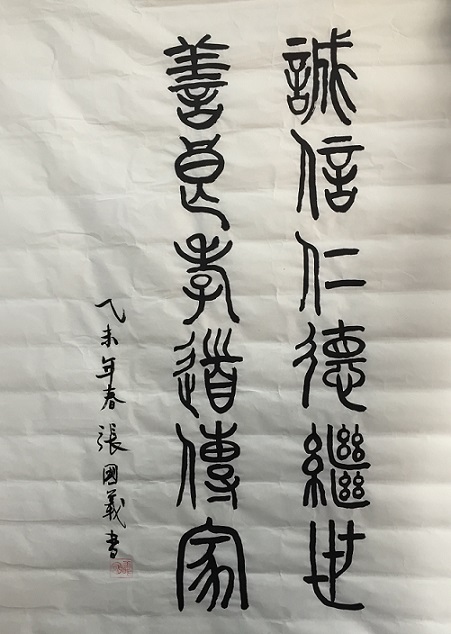 誠信仁德繼世
善良孝道傳家
乙未年春張國義書